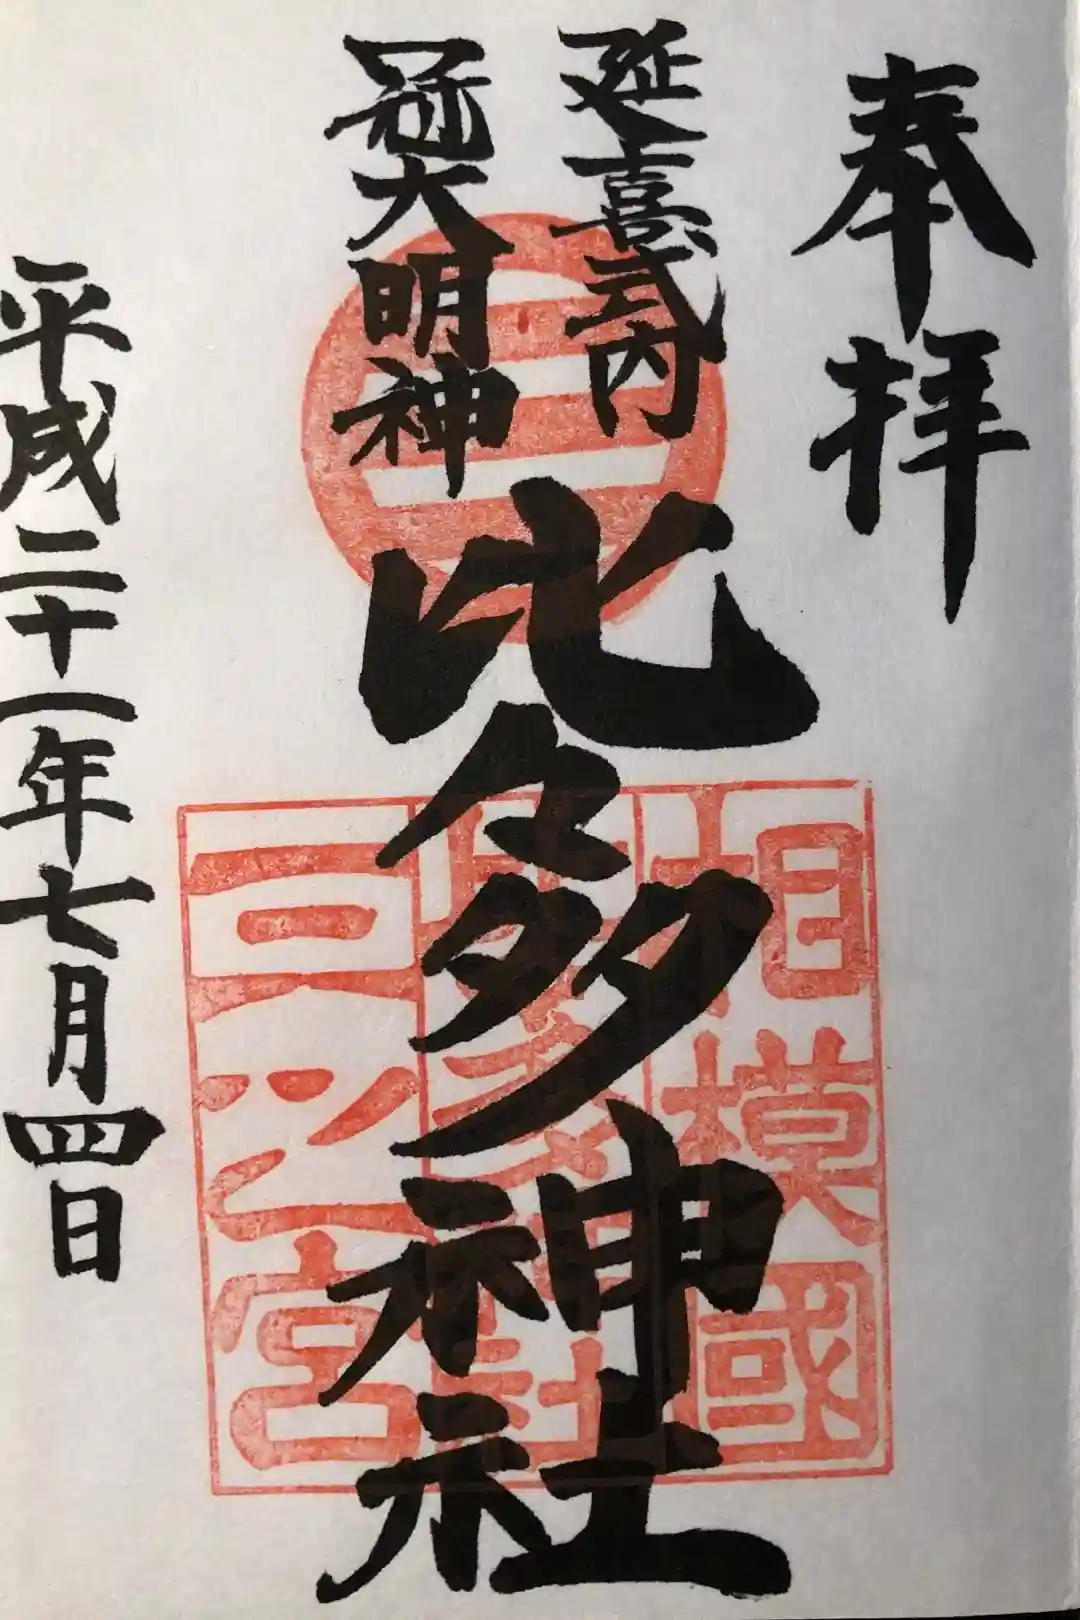 奉拝
延喜式内
冠大明神
比々多神社
平成二十一年七月四日
三
相模國
三之宮